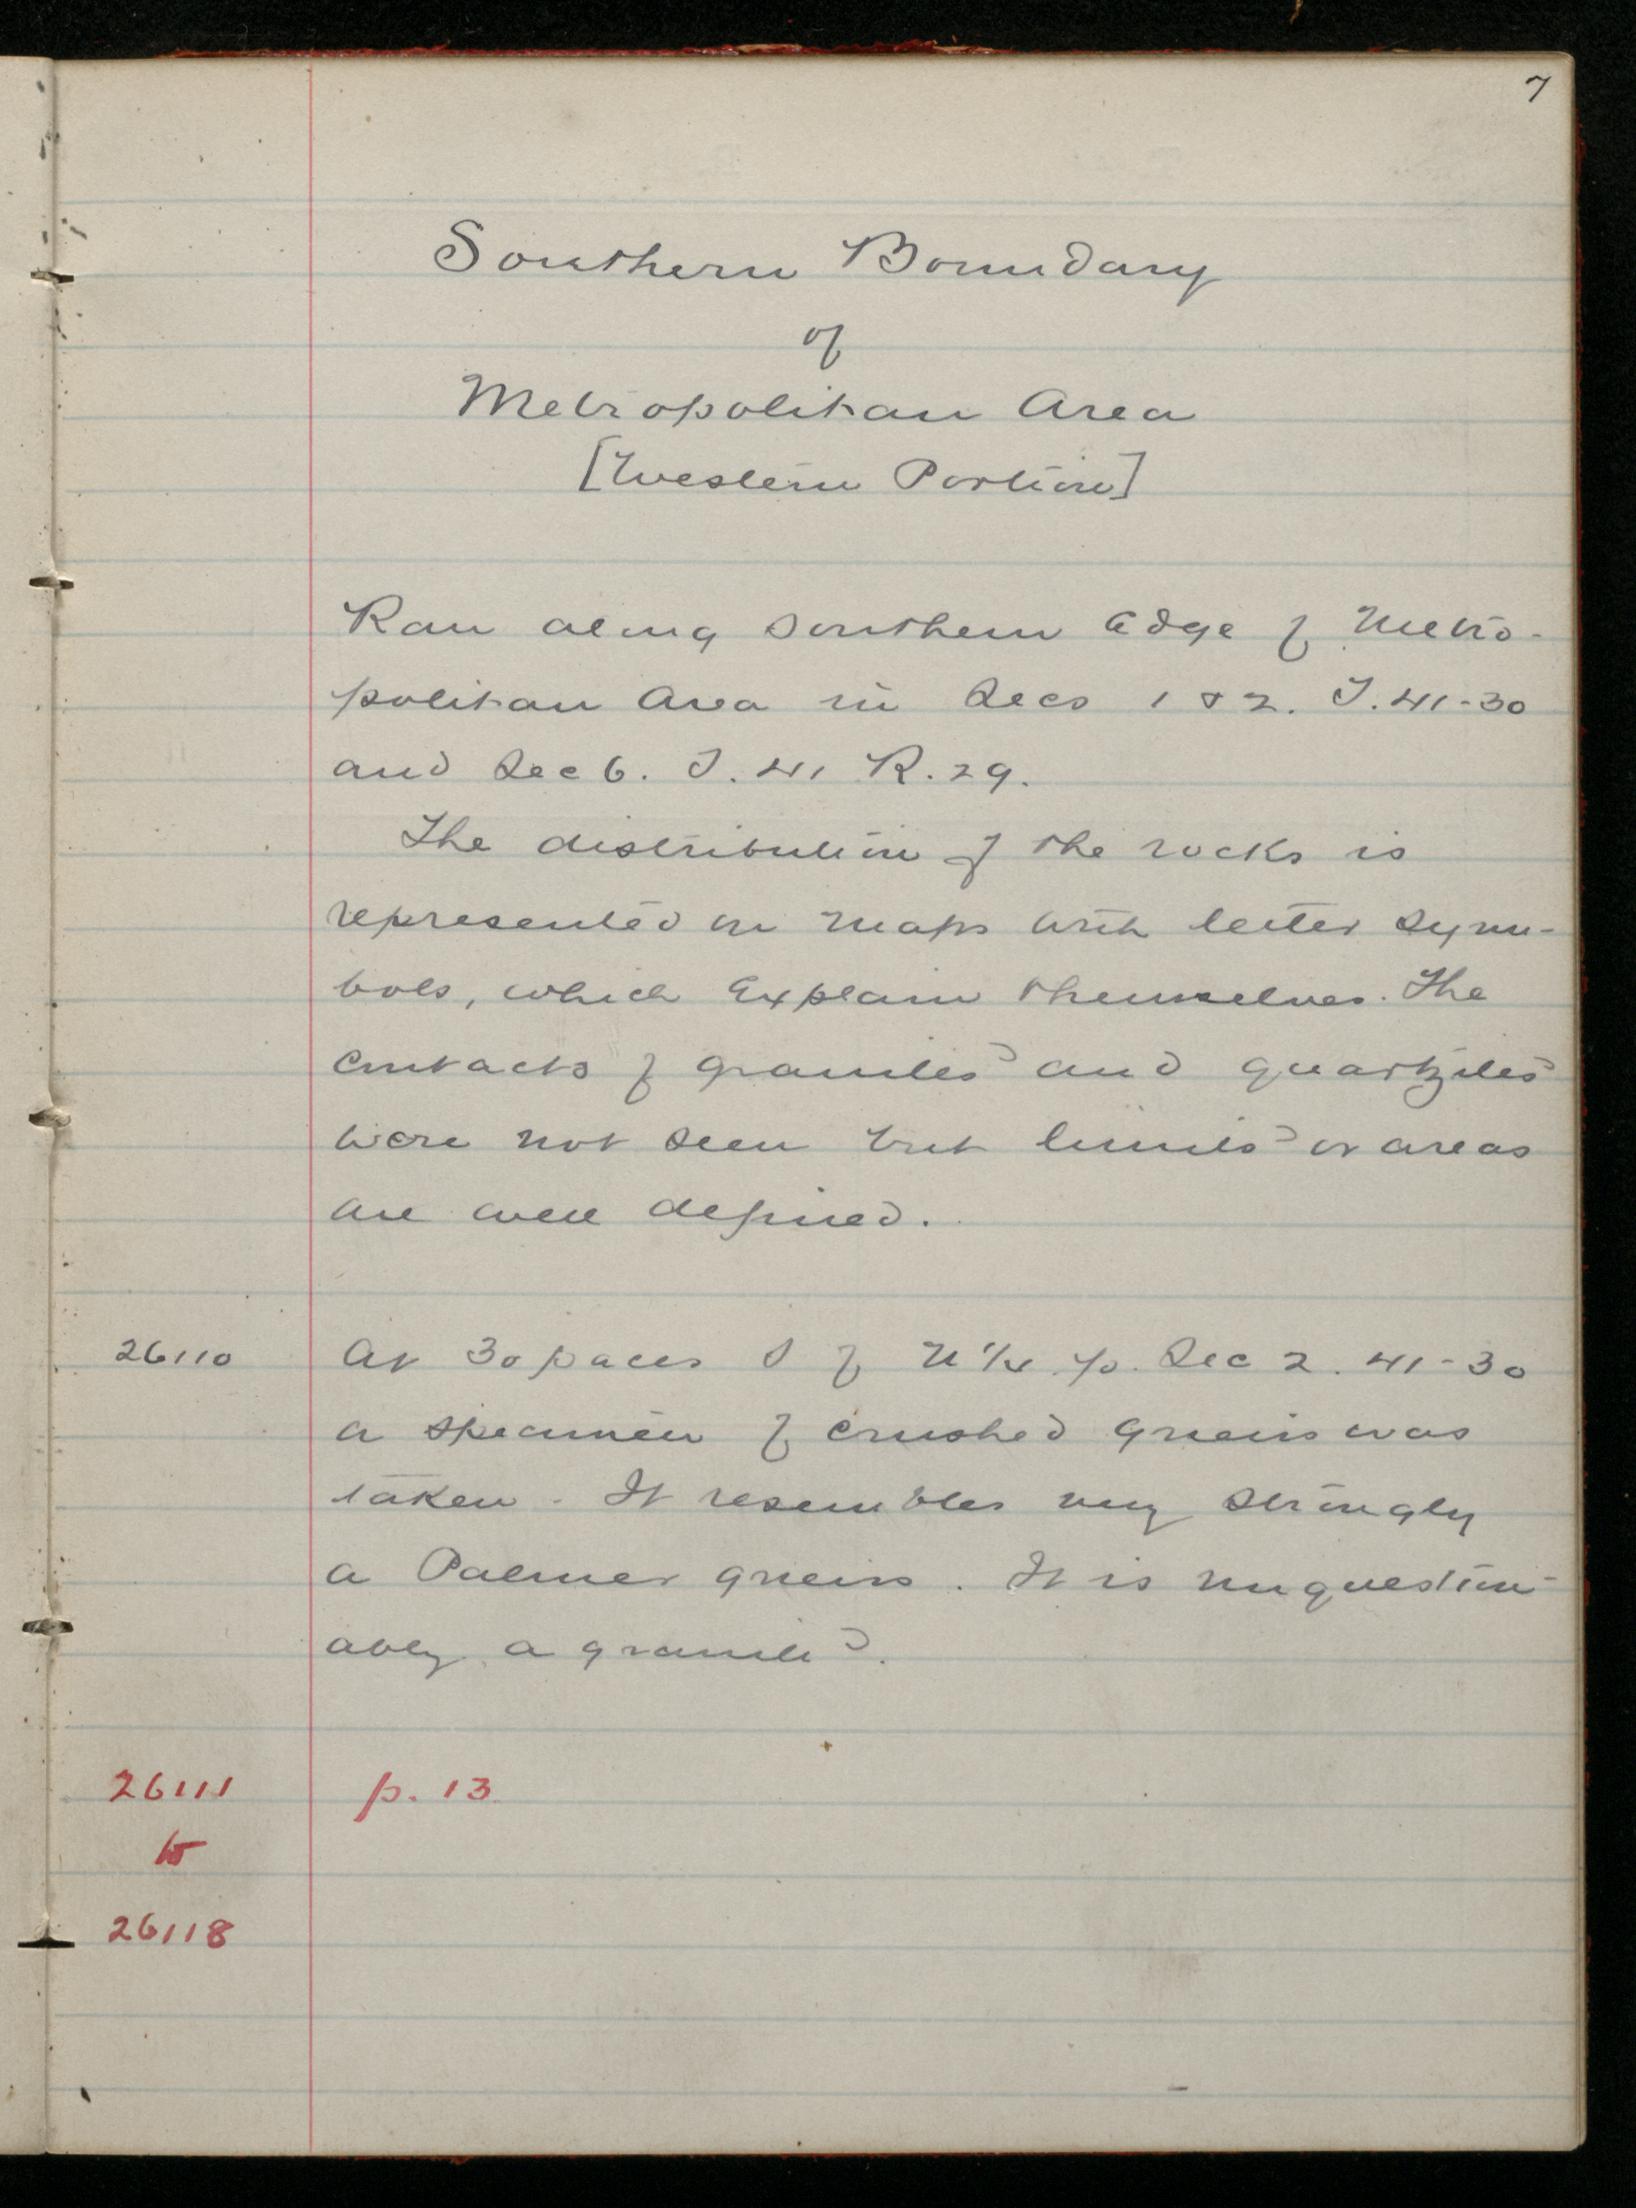 7
Southern Boundary
of
Metropolitan Area
[Western Portion]
Ran along Southern Edge of Metro-
politan Area in Secs 1 & 2. T. 41-30
and Sec 6. T. 41 R. 29.
The distribution of the rocks is
represented on maps with letter sym-
bols, which Explain themselves. The
Contacts of granites and quartzites
were not seen but limits or areas
are well defined.
26110 At 30 paces S of N 1/4 p. Sec 2. 41-30
a specimen of crushed gneiss was
taken. It resembles very strongly
a Palmer gneiss. It is unquestion-
ably a granite.
26111 p. 13
to
26118